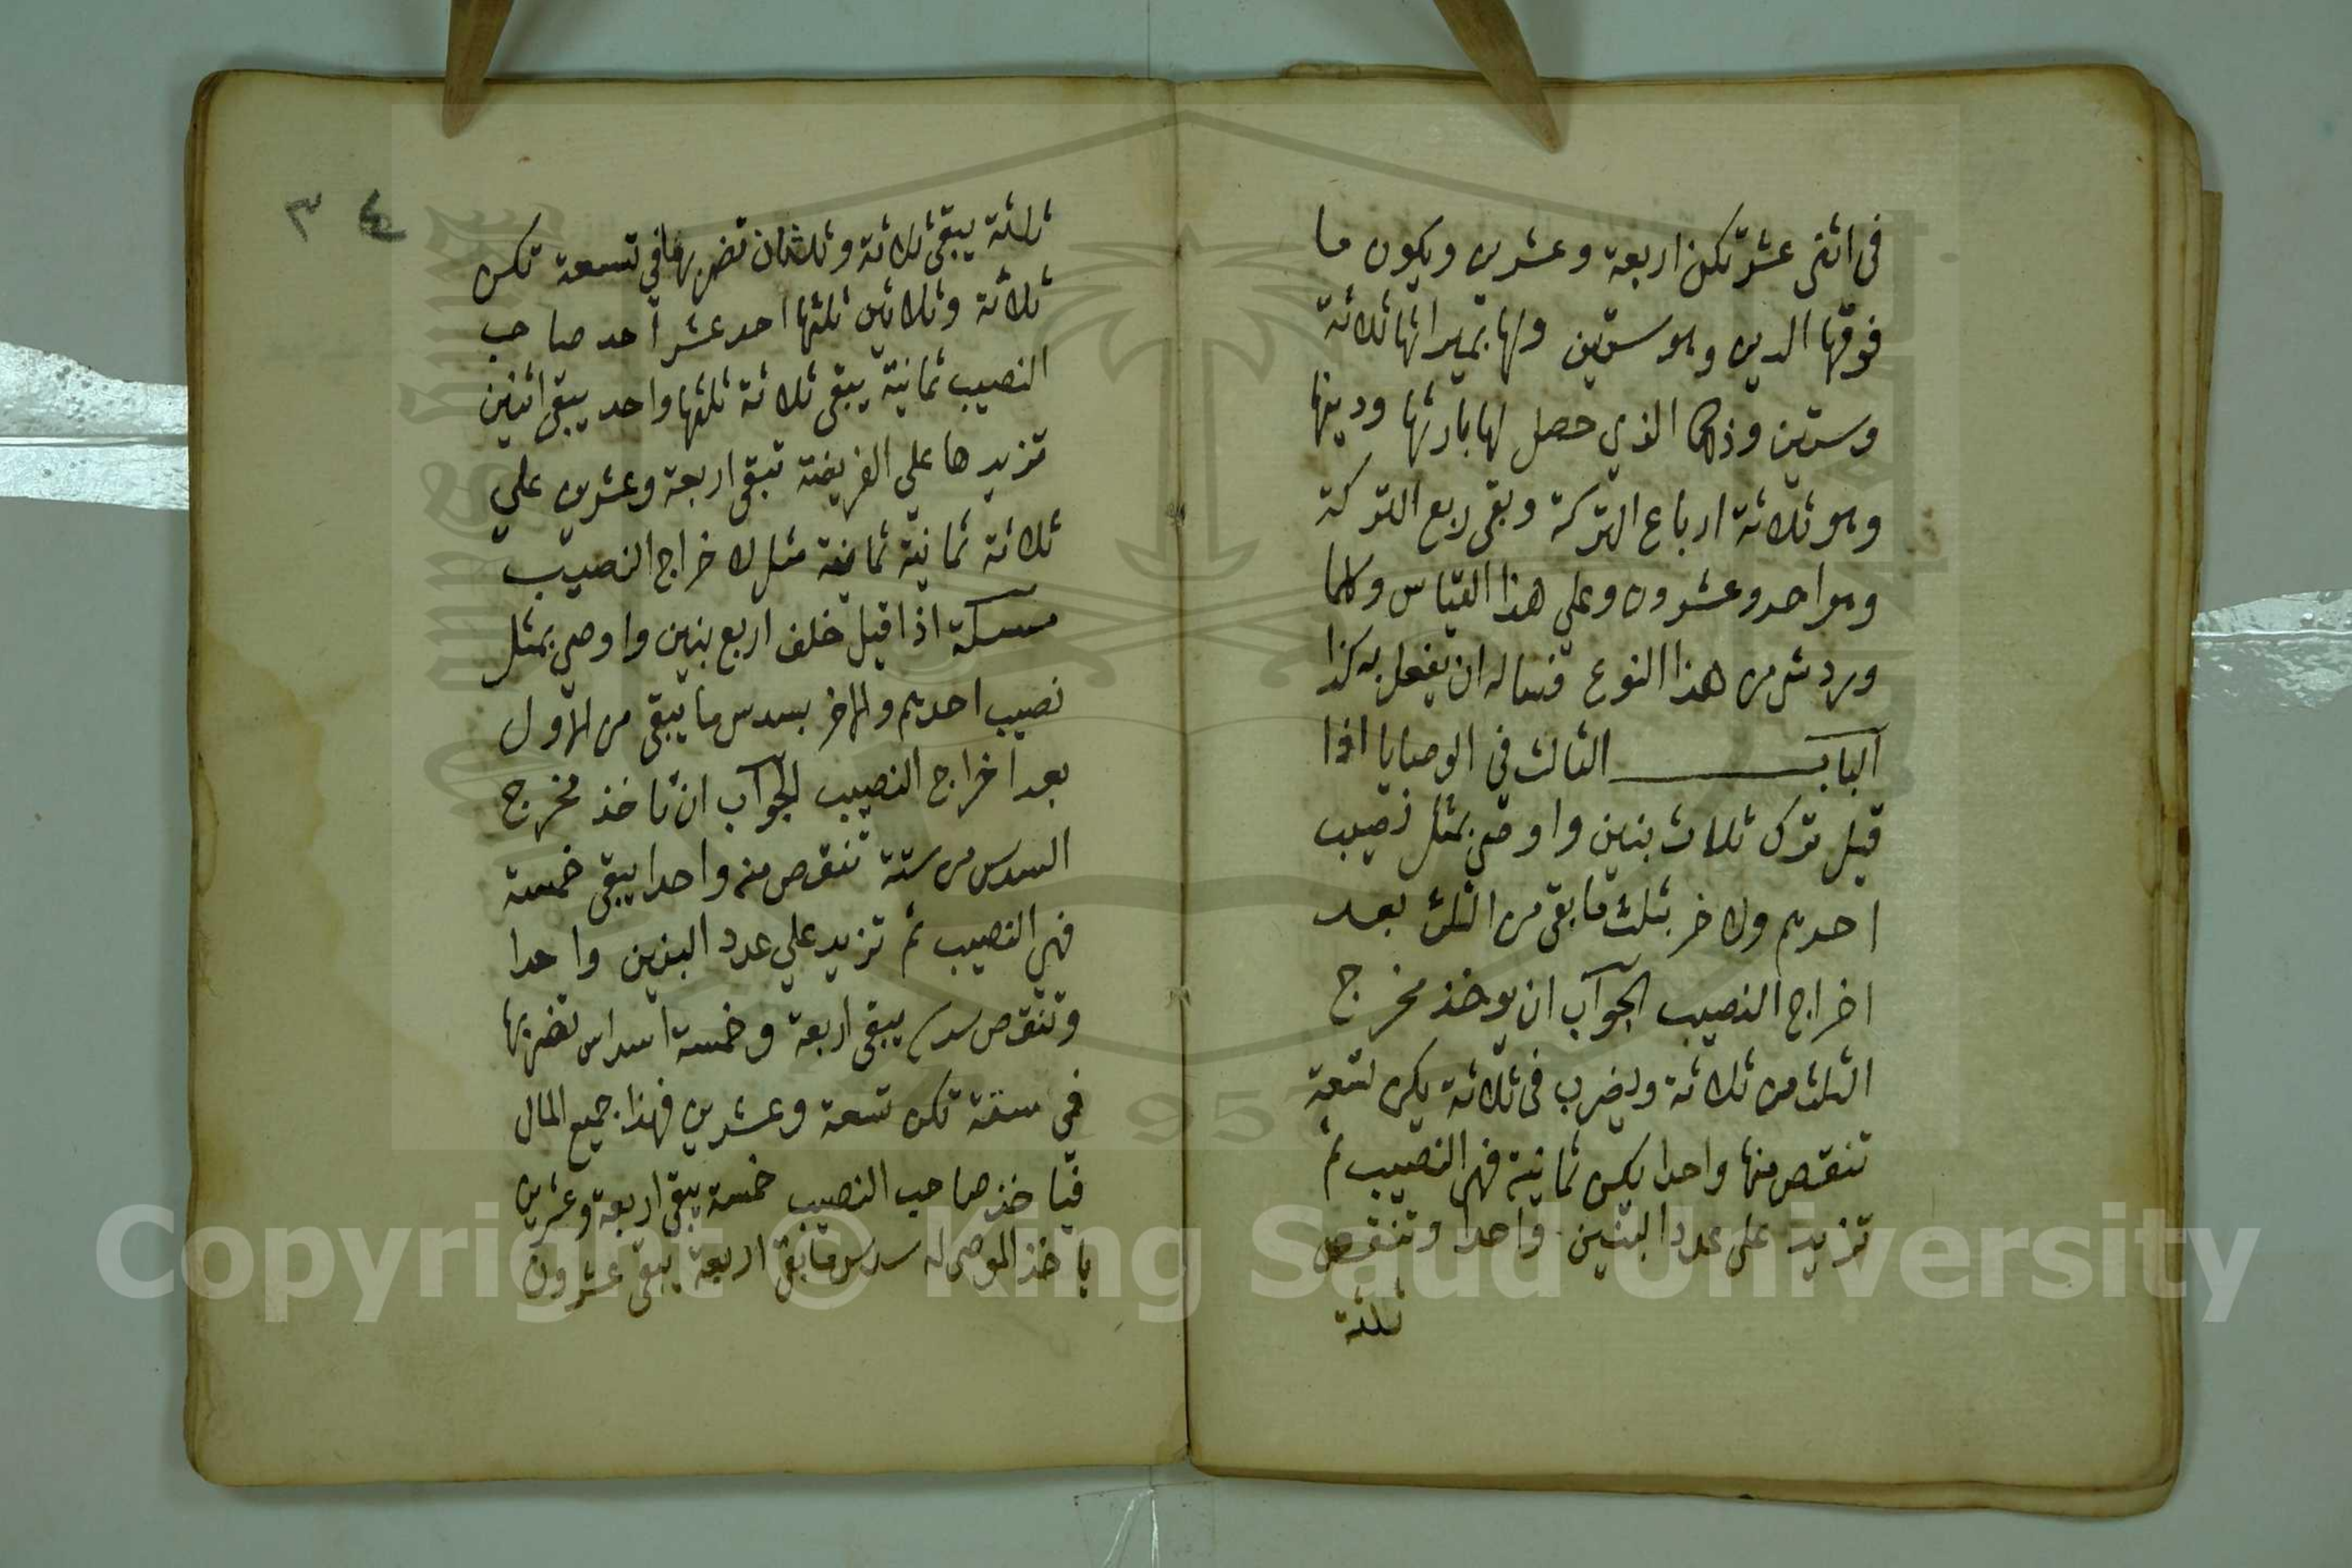 في اثنى عشر تكن اربعة وعشرين ويكون ما
فوقها الدين وهو ستين ولها بميراثها ثلاثة
وستين وذلك الذي حصل لها بارثها ودينها
وهو ثلاثة ارباع التركة وبقى ربع التركة
وهو احد وعشرون وعلي هذا القياس وكلما
ورد من هذا النوع ان يفعل به كذا
الباب الثالث في الوصايا اذا
قيل ترك ثلاث بنين واوصى بمثل نصيب
احدهم ولاخر بثلث ما بقى من الثلث بعد
اخراج النصيب الجواب ان يوخذ مخرج
الثلث من ثلاثة ويضرب في ثلاثة يكن تسعة
تنقص منها واحدا يكن ثمانية فهي النصيب ثم
تزيد على عدد البنين واحدا وتنقص
ثلثه
ثلثه يبقى ثلاثة وثلثان تضربها في تسعة تكن
ثلاثة وثلاثين ثلثها احد عشر اخد صاحب
النصيب ثمانية يبقى ثلاثة ثلثها واحد يبقى اثنين
تزيدها علي الفريضة تبقى اربعة وعشرين علي
ثلاثة ثمانية ثمانية مثل اخراج النصيب
مسئلة اذا قيل خلف اربع بنين واوصي بمثل
نصيب احدهم ولاخر بسدس ما يبقى من الاول
بعد اخراج النصيب الجواب ان تاخذ مخرج
السدس من ستة تنقص منه واحدا يبقى خمسة
فهي النصيب ثم تزيد علي عدد البنين واحدا
وتنقص سدس يبقى اربعة وخمسة اسداس تضربها
في ستة تكن تسعة وعشرين فهذا جميع المال
فياخذ صاحب النصيب خمسة يبقى اربعة وعشرين
ياخذ الموصى له سدس ما بقى اربعة يبقى عشرون
٣ ٤
Copyright © King Saud University